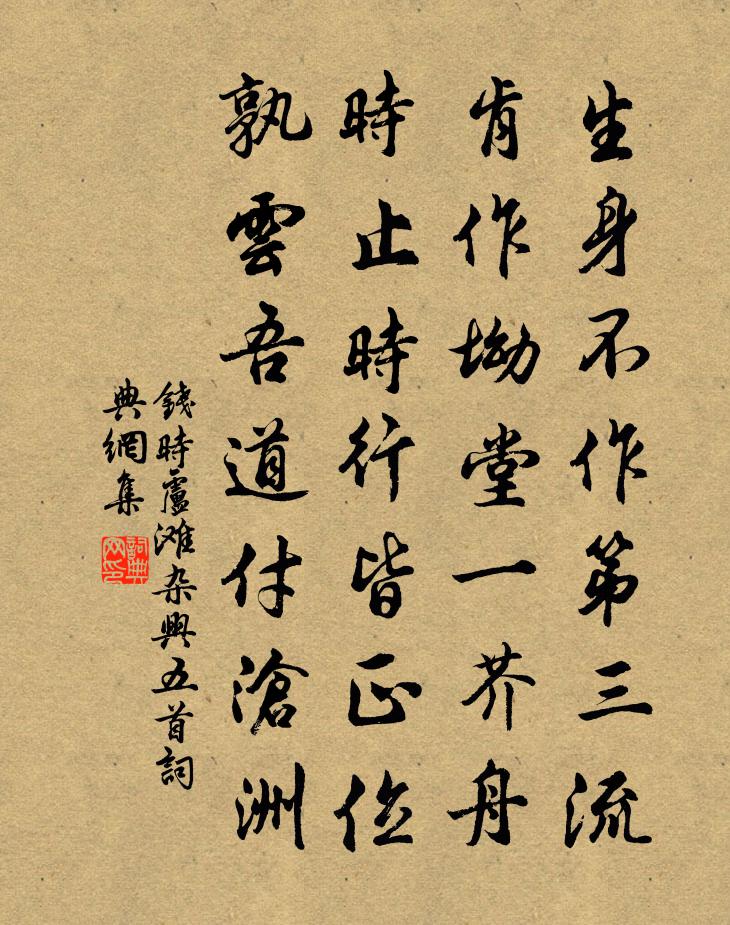 生身不作第三流
肯作坳堂一芥舟
時止時行皆正位
孰雲吾道付滄洲
錢時盧滩杂興五首詞
典網集
詞典
网印